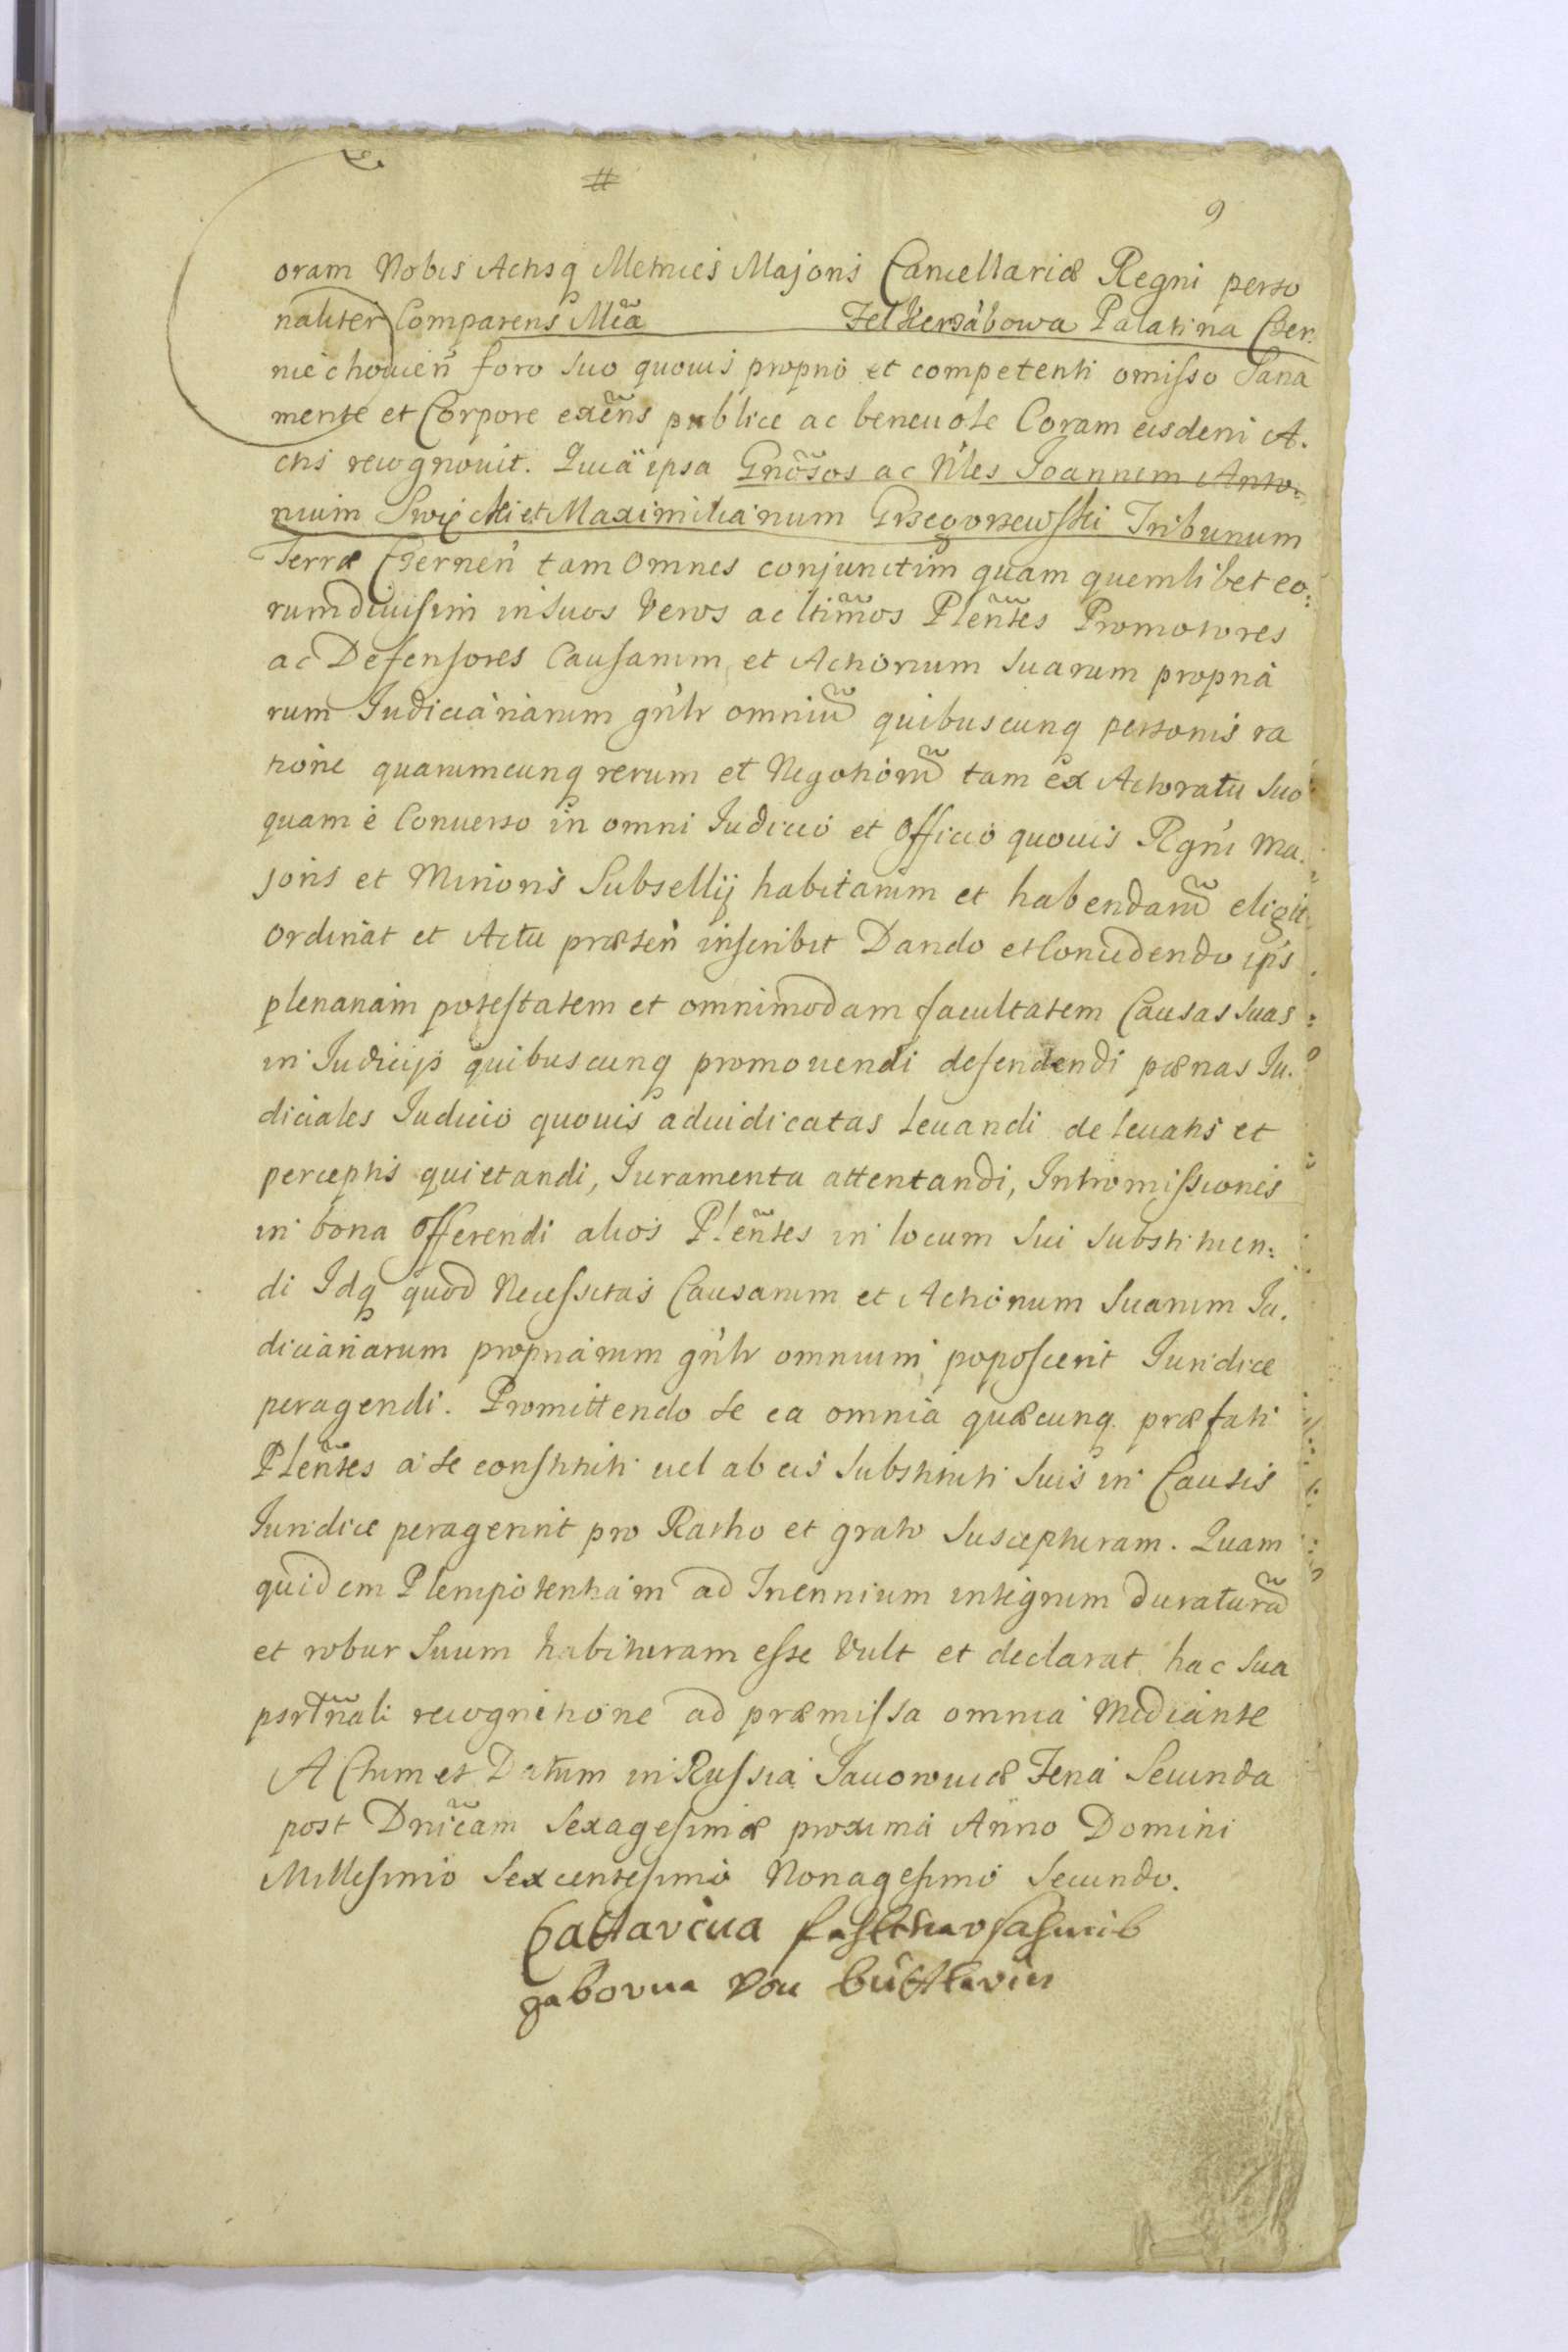 #
9
Coram Nobis Actisq Metrices Majoris Cancellariæ Regni perso
naliter Comparens Mcã Felkierzábowa Palatina Czer.
niechouien̄ foro suo quouis proprio et competenti omisso Sana
mente et Corpore exẽns publice ac beneuole Coram eisdem A.
ctis recognouit. Quia ipsa Gnõsos ac Nles Joannem Anto:
nium Swięcki et Maximilianum Grzegorzewski Tribunum
Terræ Czernen̄ tam omnes conjunctim quam quemlibet eo:
rum diuisim in suos veros ac ltimõs Plen̄tes Promotores
ac Defensores Causarum et Actionum suarum propria
rum Judiciariarum gn̄lr omniũ quibuscunq personis ra
tione quarumcunq rerum et Negotiorũ tam ex Actoratu suo
quam è Conuerso in omni Judicio et Officio quouis Rgni Ma.
joris et Minoris Subsellij habitarum et habendarũ eligit
ordinat et Actu præsen̄ inscribit Dando et Concedendo ips
plenariam potestatem et omnimodam facultatem Causas suas
in Judicijs quibuscunq promouendi defendendi pœnas Ju.
diciales Judicio quouis adiudicatas leuandi de leuatis et
perceptis quietandi, Juramenta attentandi, Intromissiones
in bona offerendi alios Plen̄tes in locum sui substituen:
di Idq quod Necessitas Causarum et Actionum suarum Ju.
diciariarum propriarum gn̄lr omnium poposcerit Juridice
peragendi. Promittendo se ea omnia quæcunq præfati
Plen̄tes a se constituti uel ab eis substituti suis in Causis
Juridice peragerint pro Ratho et grato suscepturam. Quam
quidem Plenipotentiam ad Triennium integrum duraturã
et robur suum habituram esse vult et declarat hac sua
psrtñali recognitione ad præmissa omnia Mediante
Actum et Datum in Russia Jauorouiæ Feria Secunda
post Dnicãm Sexagesimæ proxima Anno Domini
Millesimo Sexcentesimo Nonagesimo Secundo.
Cattarina
gaborna von buttlarin